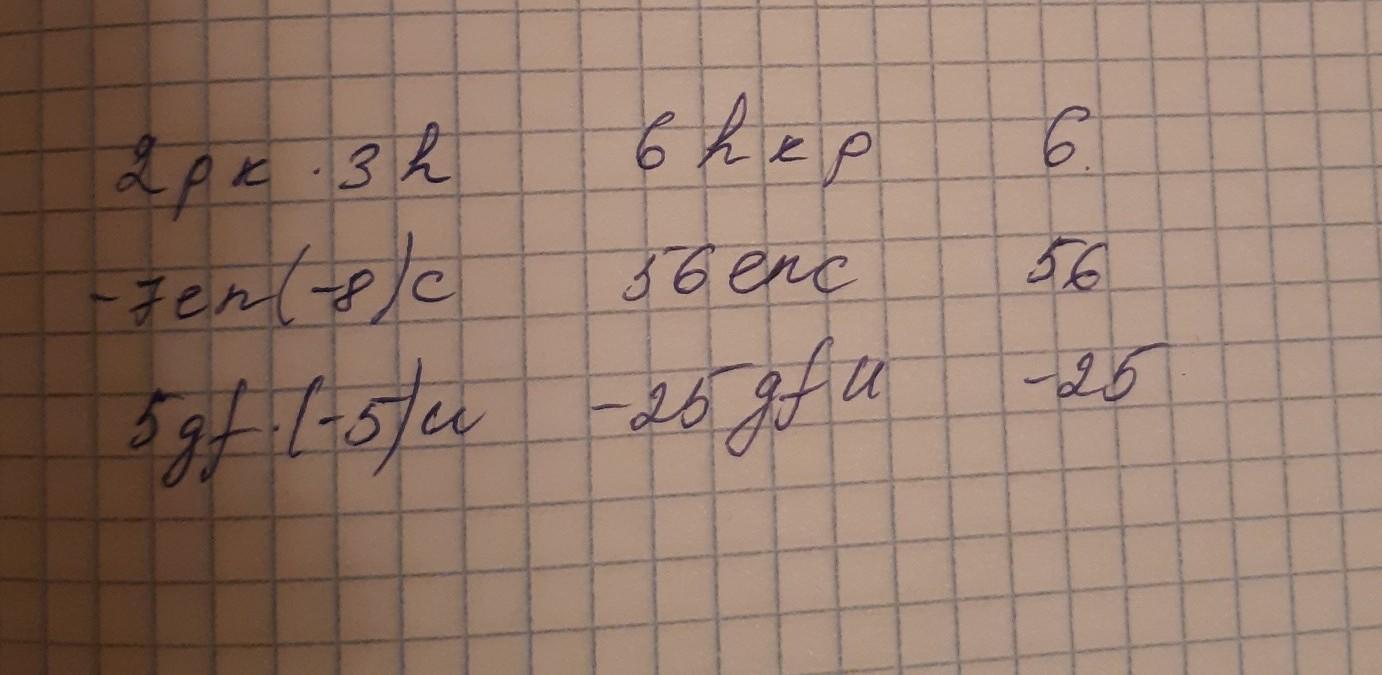 2pk · 3h 6hkp 6.
-7en(-8)c 56enc 56
5gf·(-5)u -25gfu -25